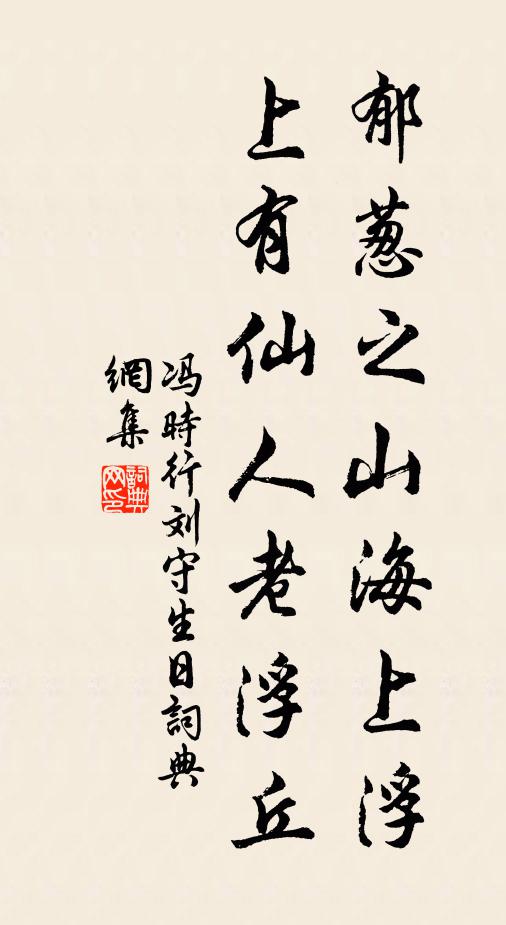 郁葱之山海上浮
上有仙人老浮丘
冯時行刘守生日詞典
網集
詞典
网印